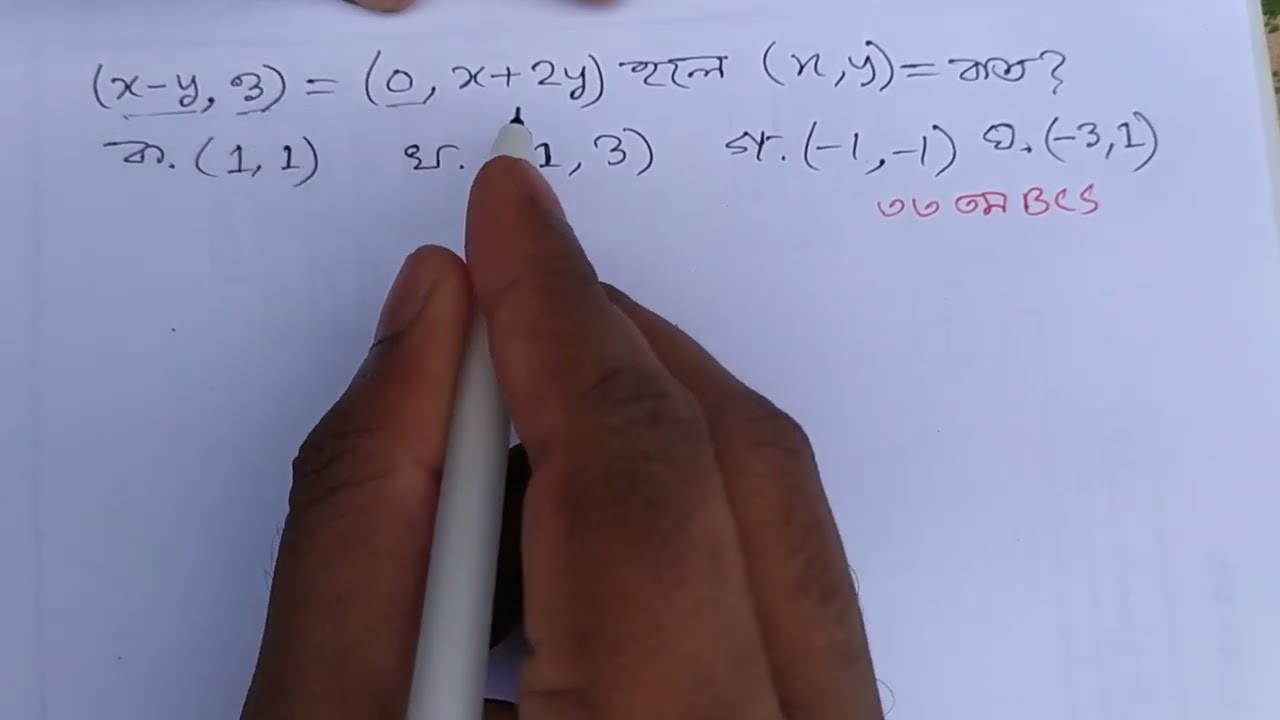 (x-y, 3) = (0, x+2y) হলে (x,y) = কত?
ক. (1, 1) খ. 1, 3) গ. (-1,-1) ঘ. (-3,1)
৩৩ তম BCS